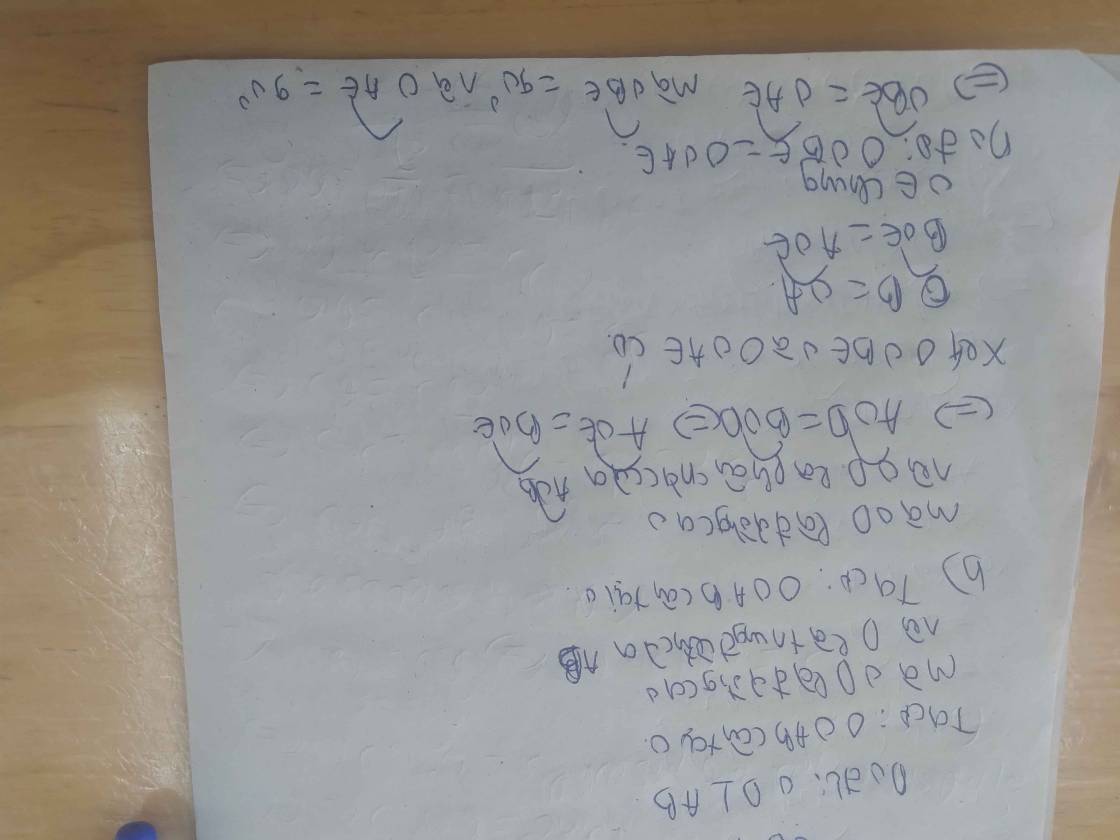 Do đó: OD ⊥ AB
Ta có: △OAB cân tại O.
Mà OD là đường cao
và D là trung điểm của AB
b) Ta có: △OAB cân tại O.
mà OD là đường cao
và OD là phân giác của AOB
(=) AOD = BOD (=) AOE = BOE
Xét △OBE và △OAE có:
OB = OA
BOE = AOE
OE chung
Do đó: △OBE = △OAE.
(=) OBE = OAE mà OBE = 90° và OAE = 90°